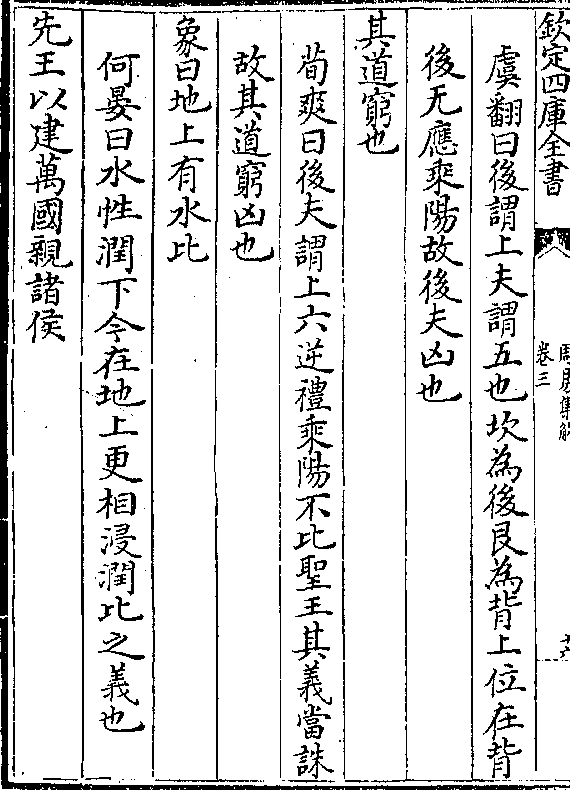 欽定四庫全書
周易集解
卷三
虞翻曰後謂上夫謂五也坎為後艮為背上位在背
後无應乘陽故後夫凶也
其道窮也
荀爽曰後夫謂上六逆禮乘陽不比聖王其義當誅
故其道窮凶也
象曰地上有水比
何晏曰水性潤下今在地上更相浸潤比之義也
先王以建萬國親諸侯